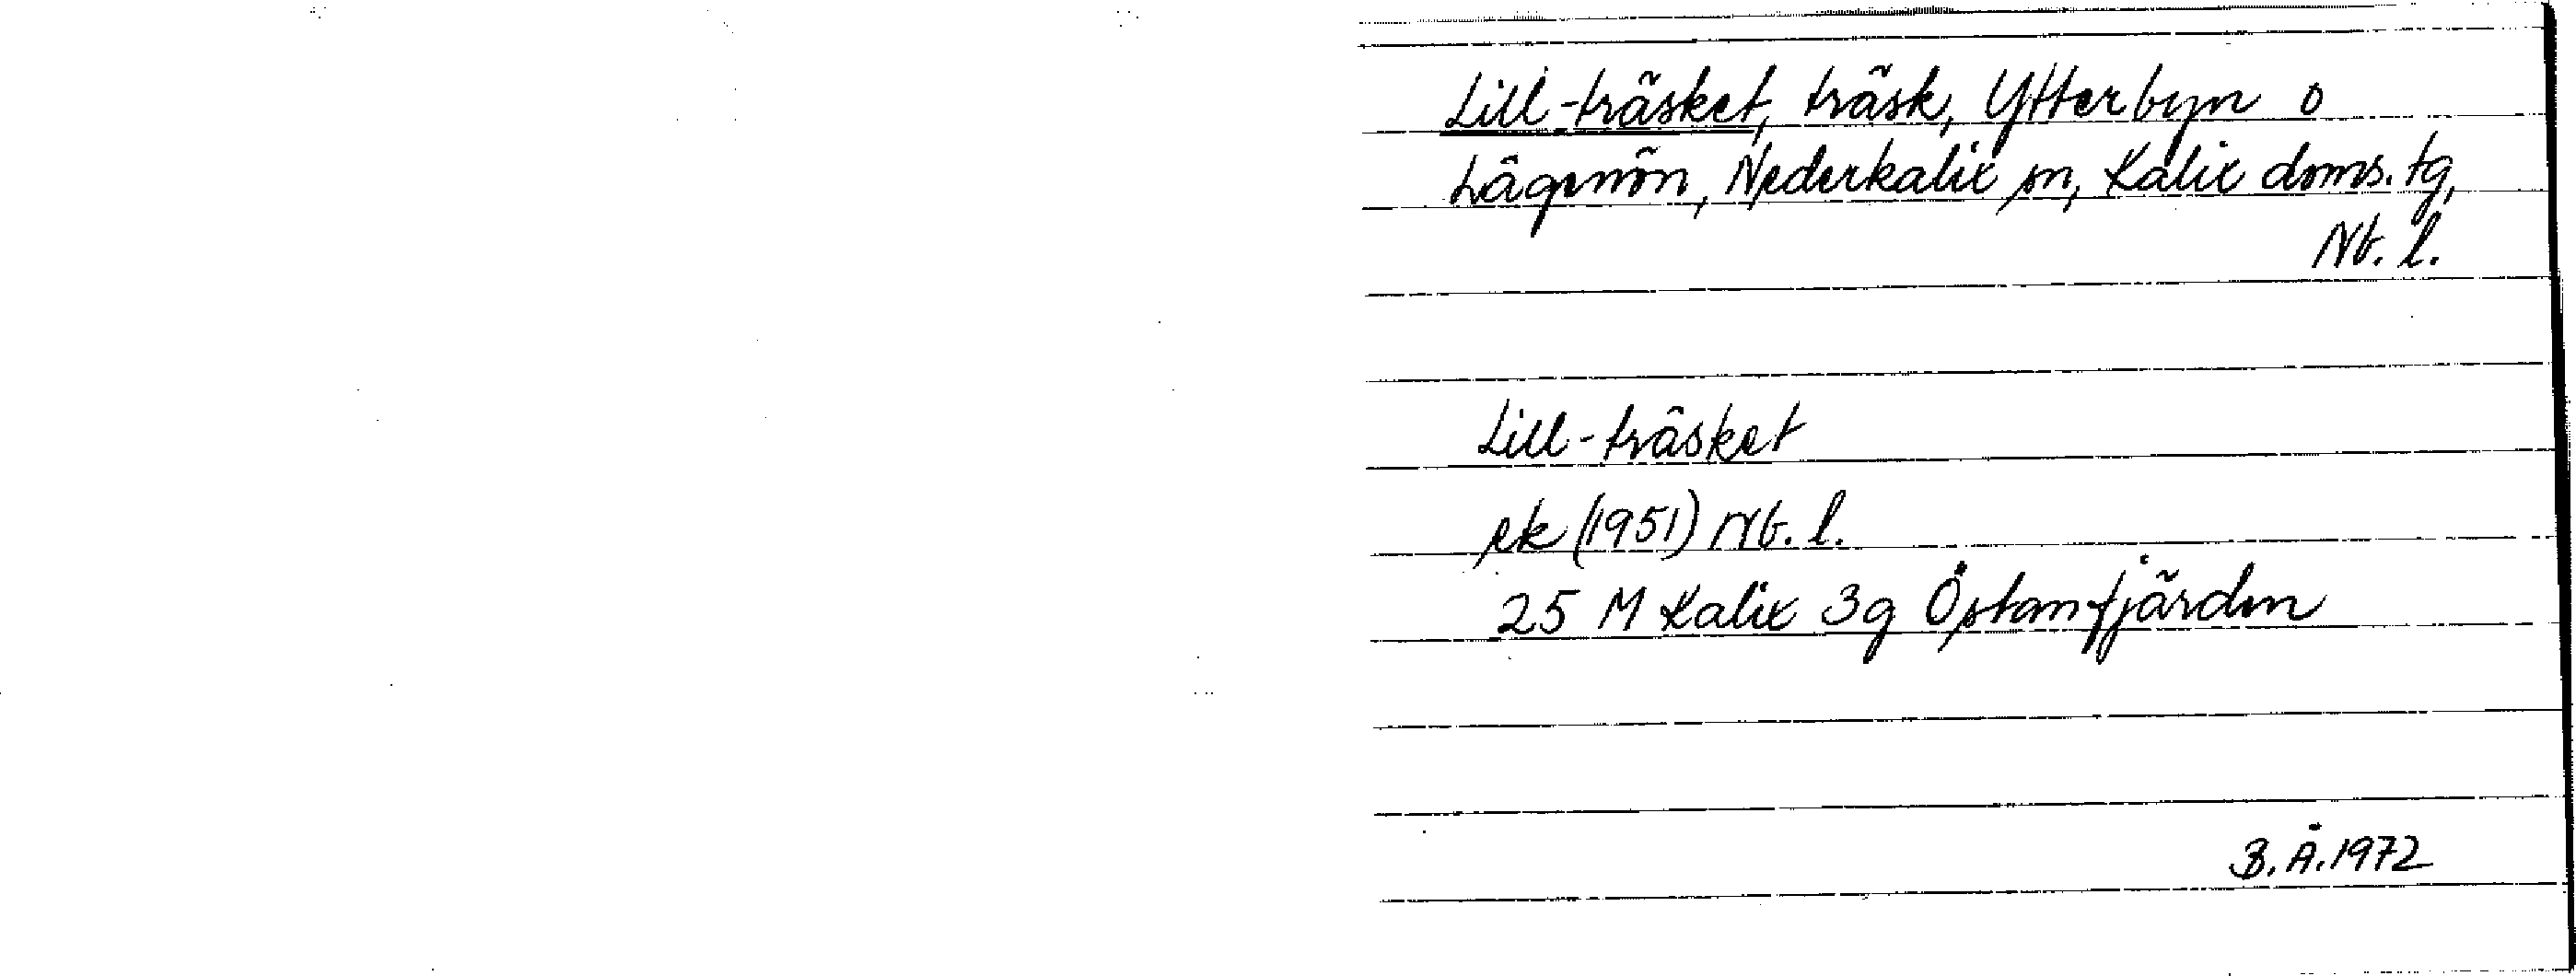 Lill-träsket, träsk, Ytterbyn o
Lågenön, Nederkalix sn, Kalix doms. tg,
Nb. l.
Lill-träsket
ek (1951) Nb. l.
25 M Kalix 3g Östanfjärden
B. Å. 1972